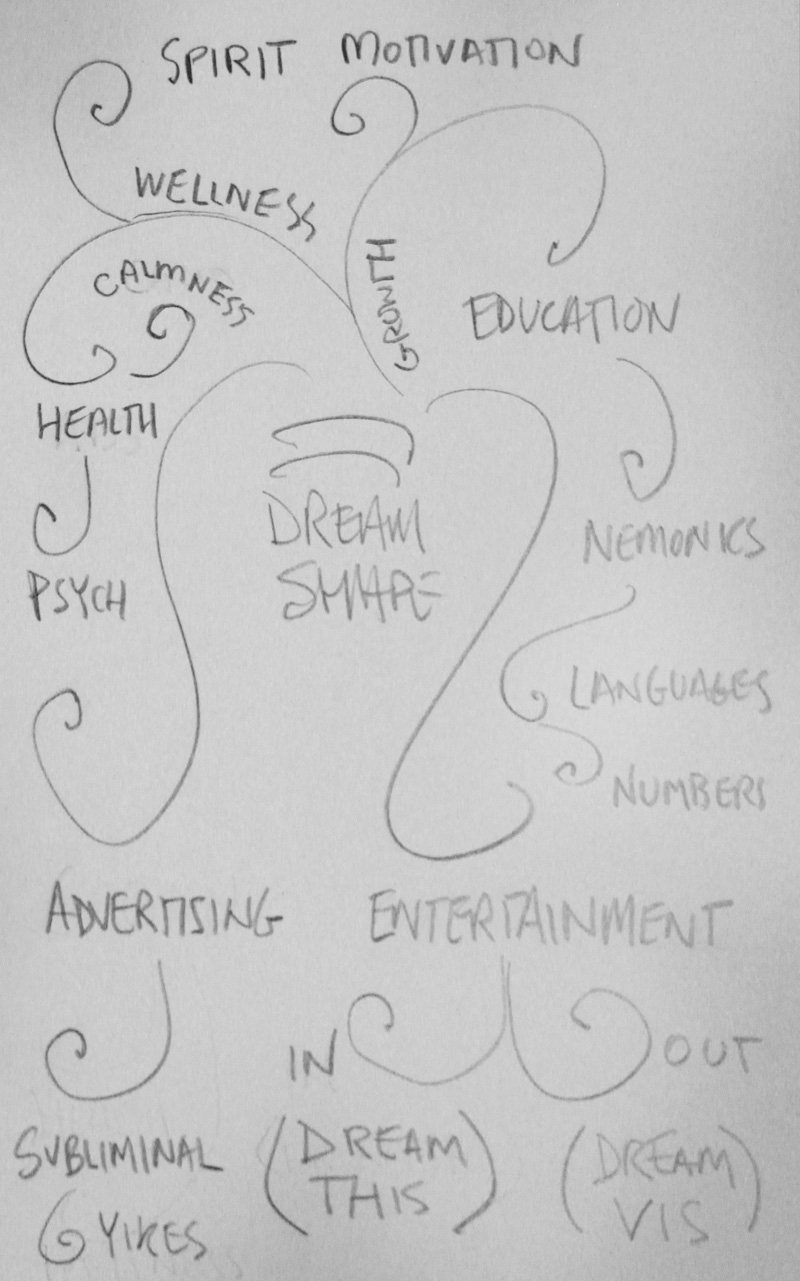 SPIRIT MOTIVATION
WELLNESS
CALMNESS
GROWTH
EDUCATION
HEALTH
DREAM
SHARE
NEMONICS
PSYCH
LANGUAGES
NUMBERS
ADVERTISING ENTERTAINMENT
IN OUT
SUBLIMINAL (DREAM THIS) (DREAM VIS)
YIKES